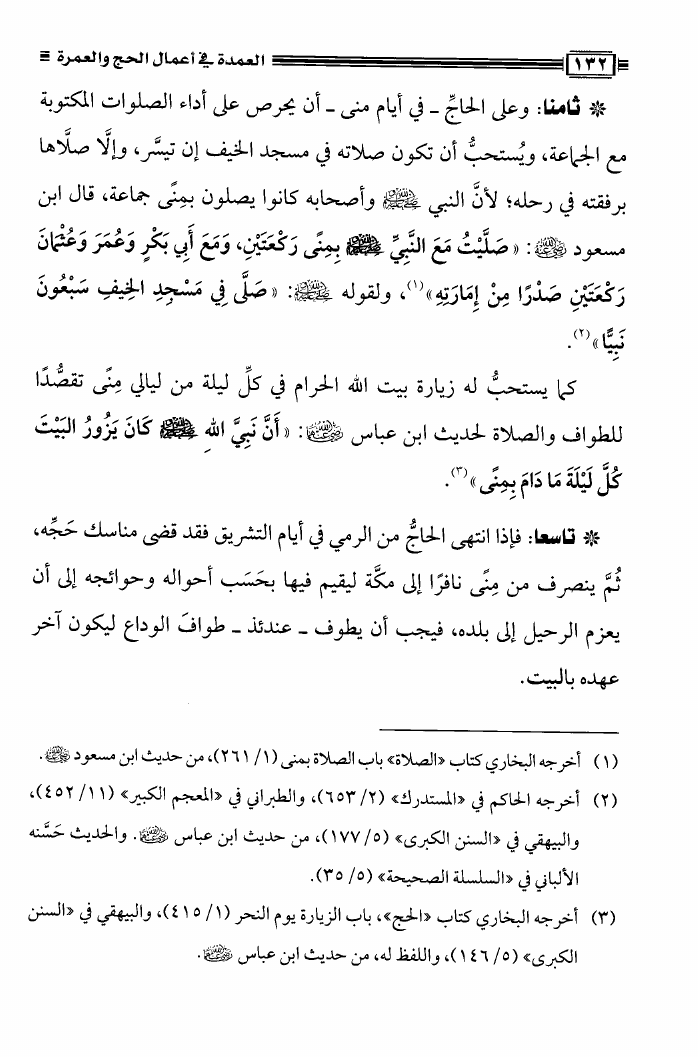 ١٣٢ العمدة في أعمال الحج والعمرة
* ثامنا: وعلى الحاجِّ ـ في أيام منى ـ أن يحرص على أداء الصلوات المكتوبة
مع الجماعة، ويُستحبُّ أن تكون صلاته في مسجد الخيف إن تيسَّر، وإلَّا صلَّاها
برفقته في رحله؛ لأنَّ النبي ﷺ وأصحابه كانوا يصلون بمِنًى جماعة، قال ابن
مسعود رضي الله عنه: «صَلَّيْتُ مَعَ النَّبِيِّ ﷺ بِمِنًى رَكْعَتَيْنِ، وَمَعَ أَبِي بَكْرٍ وَعُمَرَ وَعُثْمَانَ
رَكْعَتَيْنِ صَدْرًا مِنْ إِمَارَتِهِ»(١)، ولقوله ﷺ: «صَلَّى فِي مَسْجِدِ الخِيفِ سَبْعُونَ
نَبِيًّا»(٢).
كما يستحبُّ له زيارة بيت الله الحرام في كلِّ ليلة من ليالي مِنًى تقصُّدًا
للطواف والصلاة لحديث ابن عباس رضي الله عنهما: «أَنَّ نَبِيَّ اللهِ ﷺ كَانَ يَزُورُ البَيْتَ
كُلَّ لَيْلَةٍ مَا دَامَ بِمِنًى»(٣).
* تاسعا: فإذا انتهى الحاجُّ من الرمي في أيام التشريق فقد قضى مناسك حَجِّه،
ثُمَّ ينصرف من مِنًى نافرًا إلى مكَّة ليقيم فيها بحَسَب أحواله وحوائجه إلى أن
يعزم الرحيل إلى بلده، فيجب أن يطوف ـ عندئذ ـ طوافَ الوداع ليكون آخر
عهده بالبيت.
(١) أخرجه البخاري كتاب «الصلاة» باب الصلاة بمنى (١/ ٢٦١)، من حديث ابن مسعود رضي الله عنه.
(٢) أخرجه الحاكم في «المستدرك» (٢/ ٦٥٣)، والطبراني في «المعجم الكبير» (١١/ ٤٥٢)،
والبيهقي في «السنن الكبرى» (٥/ ١٧٧)، من حديث ابن عباس رضي الله عنهما. والحديث حَسَّنه
الألباني في «السلسلة الصحيحة» (٥/ ٣٥).
(٣) أخرجه البخاري كتاب «الحج»، باب الزيارة يوم النحر (١/ ٤١٥)، والبيهقي في «السنن
الكبرى» (٥/ ١٤٦)، واللفظ له، من حديث ابن عباس رضي الله عنهما.